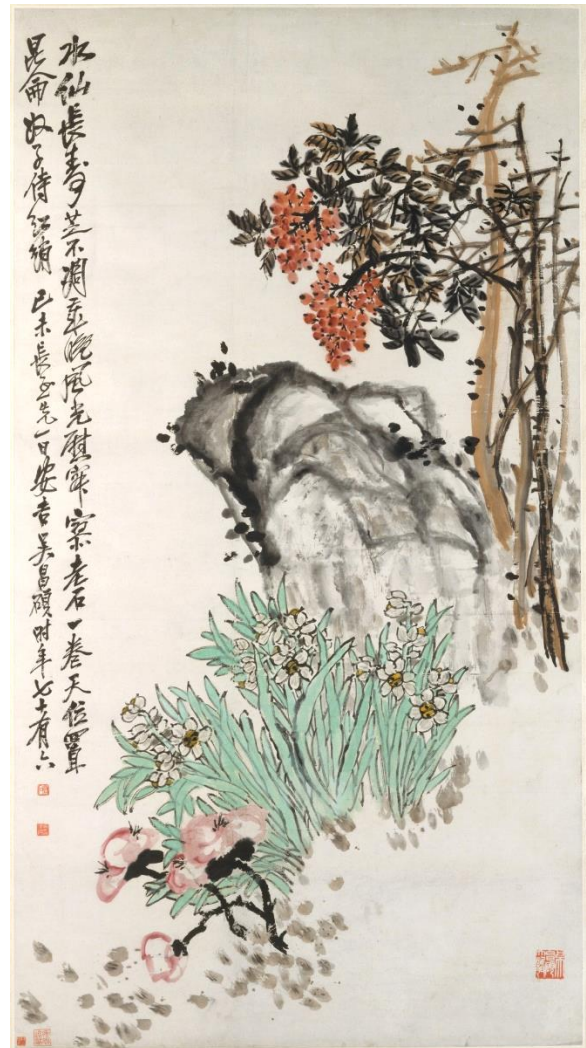 水仙長壽芝不凋歲晚風光慰寂寥老石一卷天位置
昆侖奴子侍紅綃己未長至先一日安吉吳昌碩時年七十有六